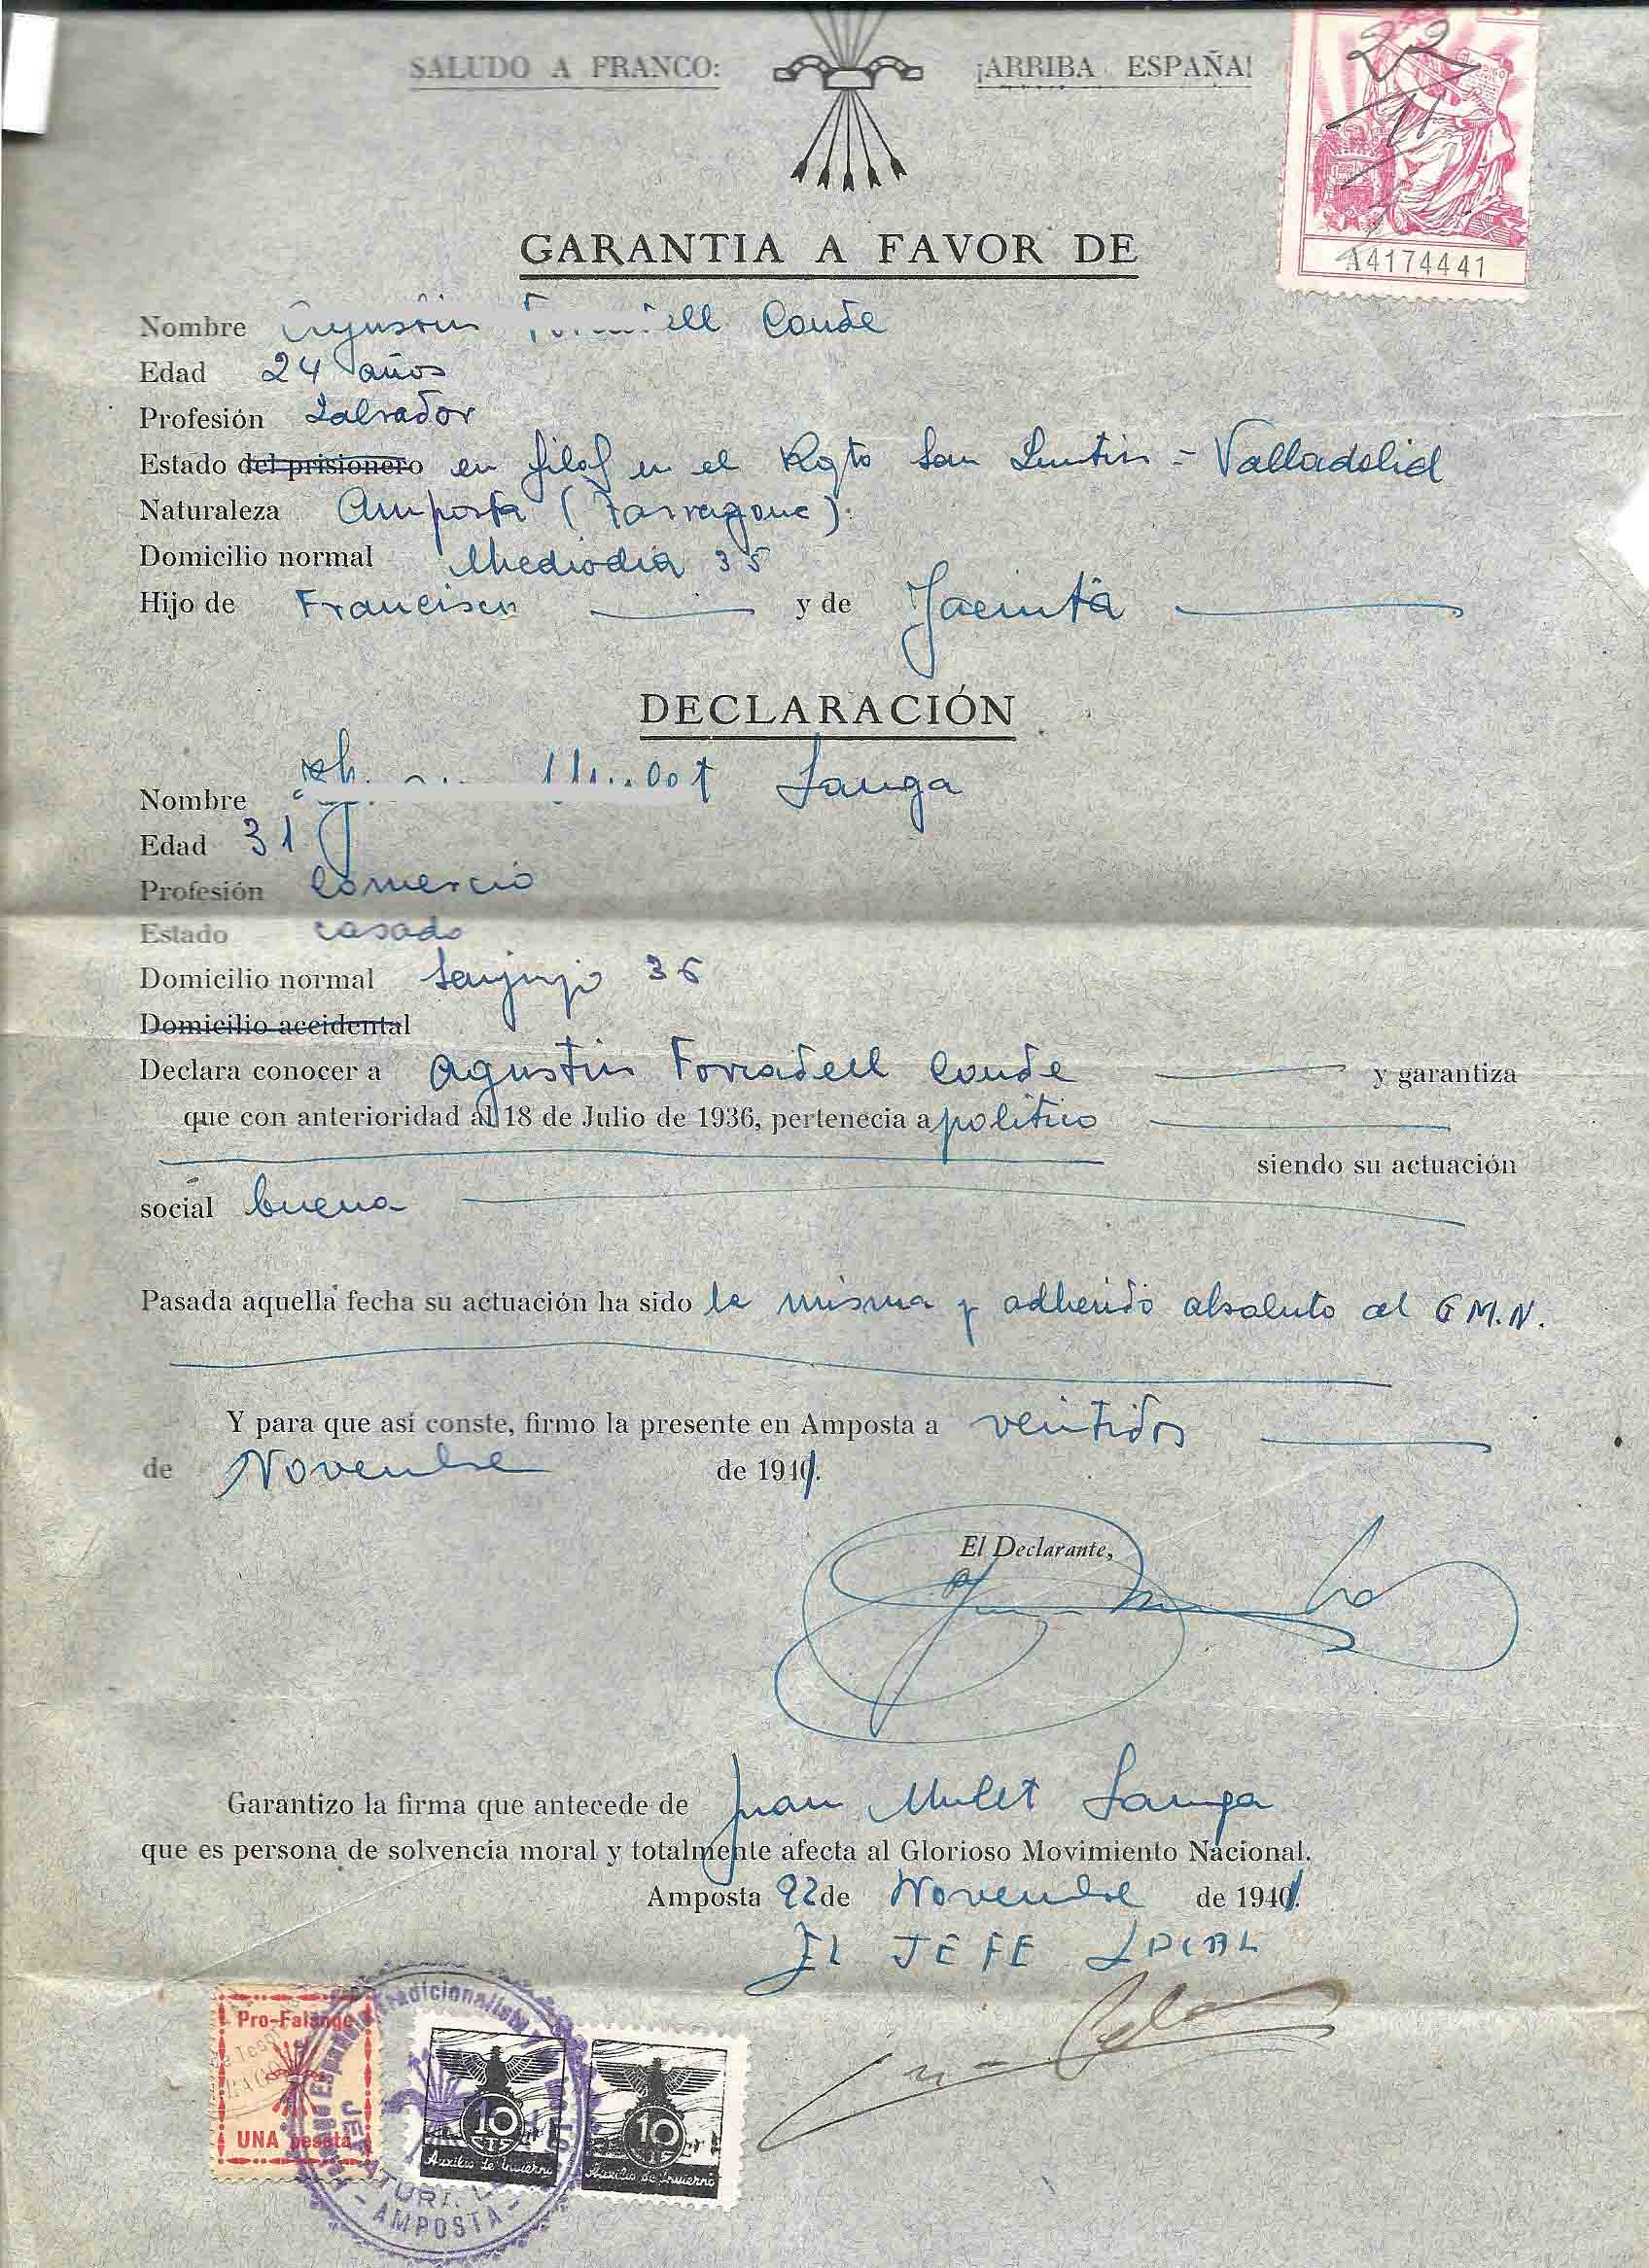 SALUDO A FRANCO: ¡ARRIBA ESPAÑA!
22
11
A4174441
GARANTIA A FAVOR DE
Nombre Agustin Conde
Edad 24 años
Profesión Labrador
Estado del prisionero en filas en el Rgto San Quintin = Valladolid
Naturaleza Amposta (Tarragona).
Domicilio normal Mediodia 35
Hijo de Francisco y de Jacinta
DECLARACIÓN
Nombre Sanga
Edad 31
Profesión Comercio
Estado casado
Domicilio normal 36
Domicilio accidental
Declara conocer a Agustin Forcadell Conde y garantiza
que con anterioridad al 18 de Julio de 1936, pertenecia a politico
siendo su actuación
social buena
Pasada aquella fecha su actuación ha sido la misma y adherido absoluto al G.M.N.
Y para que así conste, firmo la presente en Amposta a veintidos
de Novembre de 1941.
El Declarante,
Garantizo la firma que antecede de Juan Mulet Sanga
que es persona de solvencia moral y totalmente afecta al Glorioso Movimiento Nacional.
Amposta 22 de Novembre de 1941.
EL JEFE LOCAL
Pro-Falange
UNA peseta
10 CTS
Auxilio de Invierno
10 CTS
Auxilio de Invierno
Española Tradicionalista
JEFATURA
- AMPOSTA -